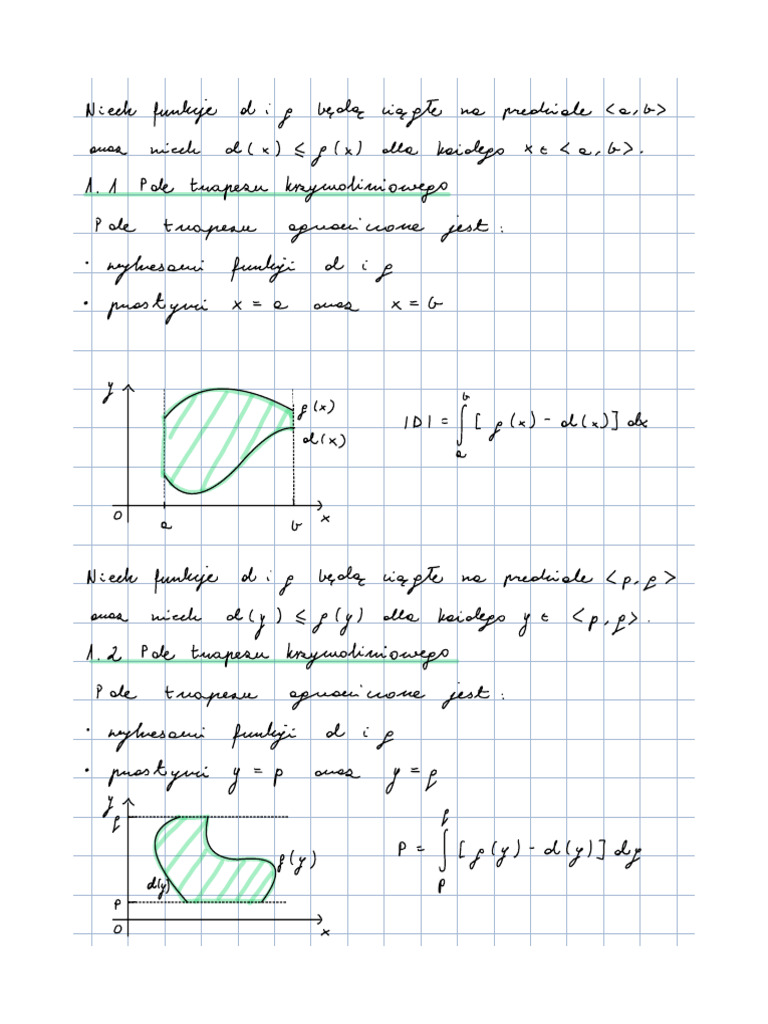 Niech funkcje d i g będą ciągłe na przedziale <a,b>
oraz niech d(x) ⩽ g(x) dla każdego x ε <a,b>.
1.1 Pole trapezu krzywoliniowego
Pole trapezu ograniczone jest:
• wykresami funkcji d i g
• prostymi x = a oraz x = b
y
g(x)
d(x)
0
a
b
x
|D| = ∫ₐᵇ [g(x) - d(x)] dx
Niech funkcje d i g będą ciągłe na przedziale <p,q>
oraz niech d(y) ⩽ g(y) dla każdego y ε <p,q>.
1.2 Pole trapezu krzywoliniowego
Pole trapezu ograniczone jest:
• wykresami funkcji d i g
• prostymi y = p oraz y = q
y
q
g(y)
d(y)
p
0
x
P = ∫ₚ^q [g(y) - d(y)] dy